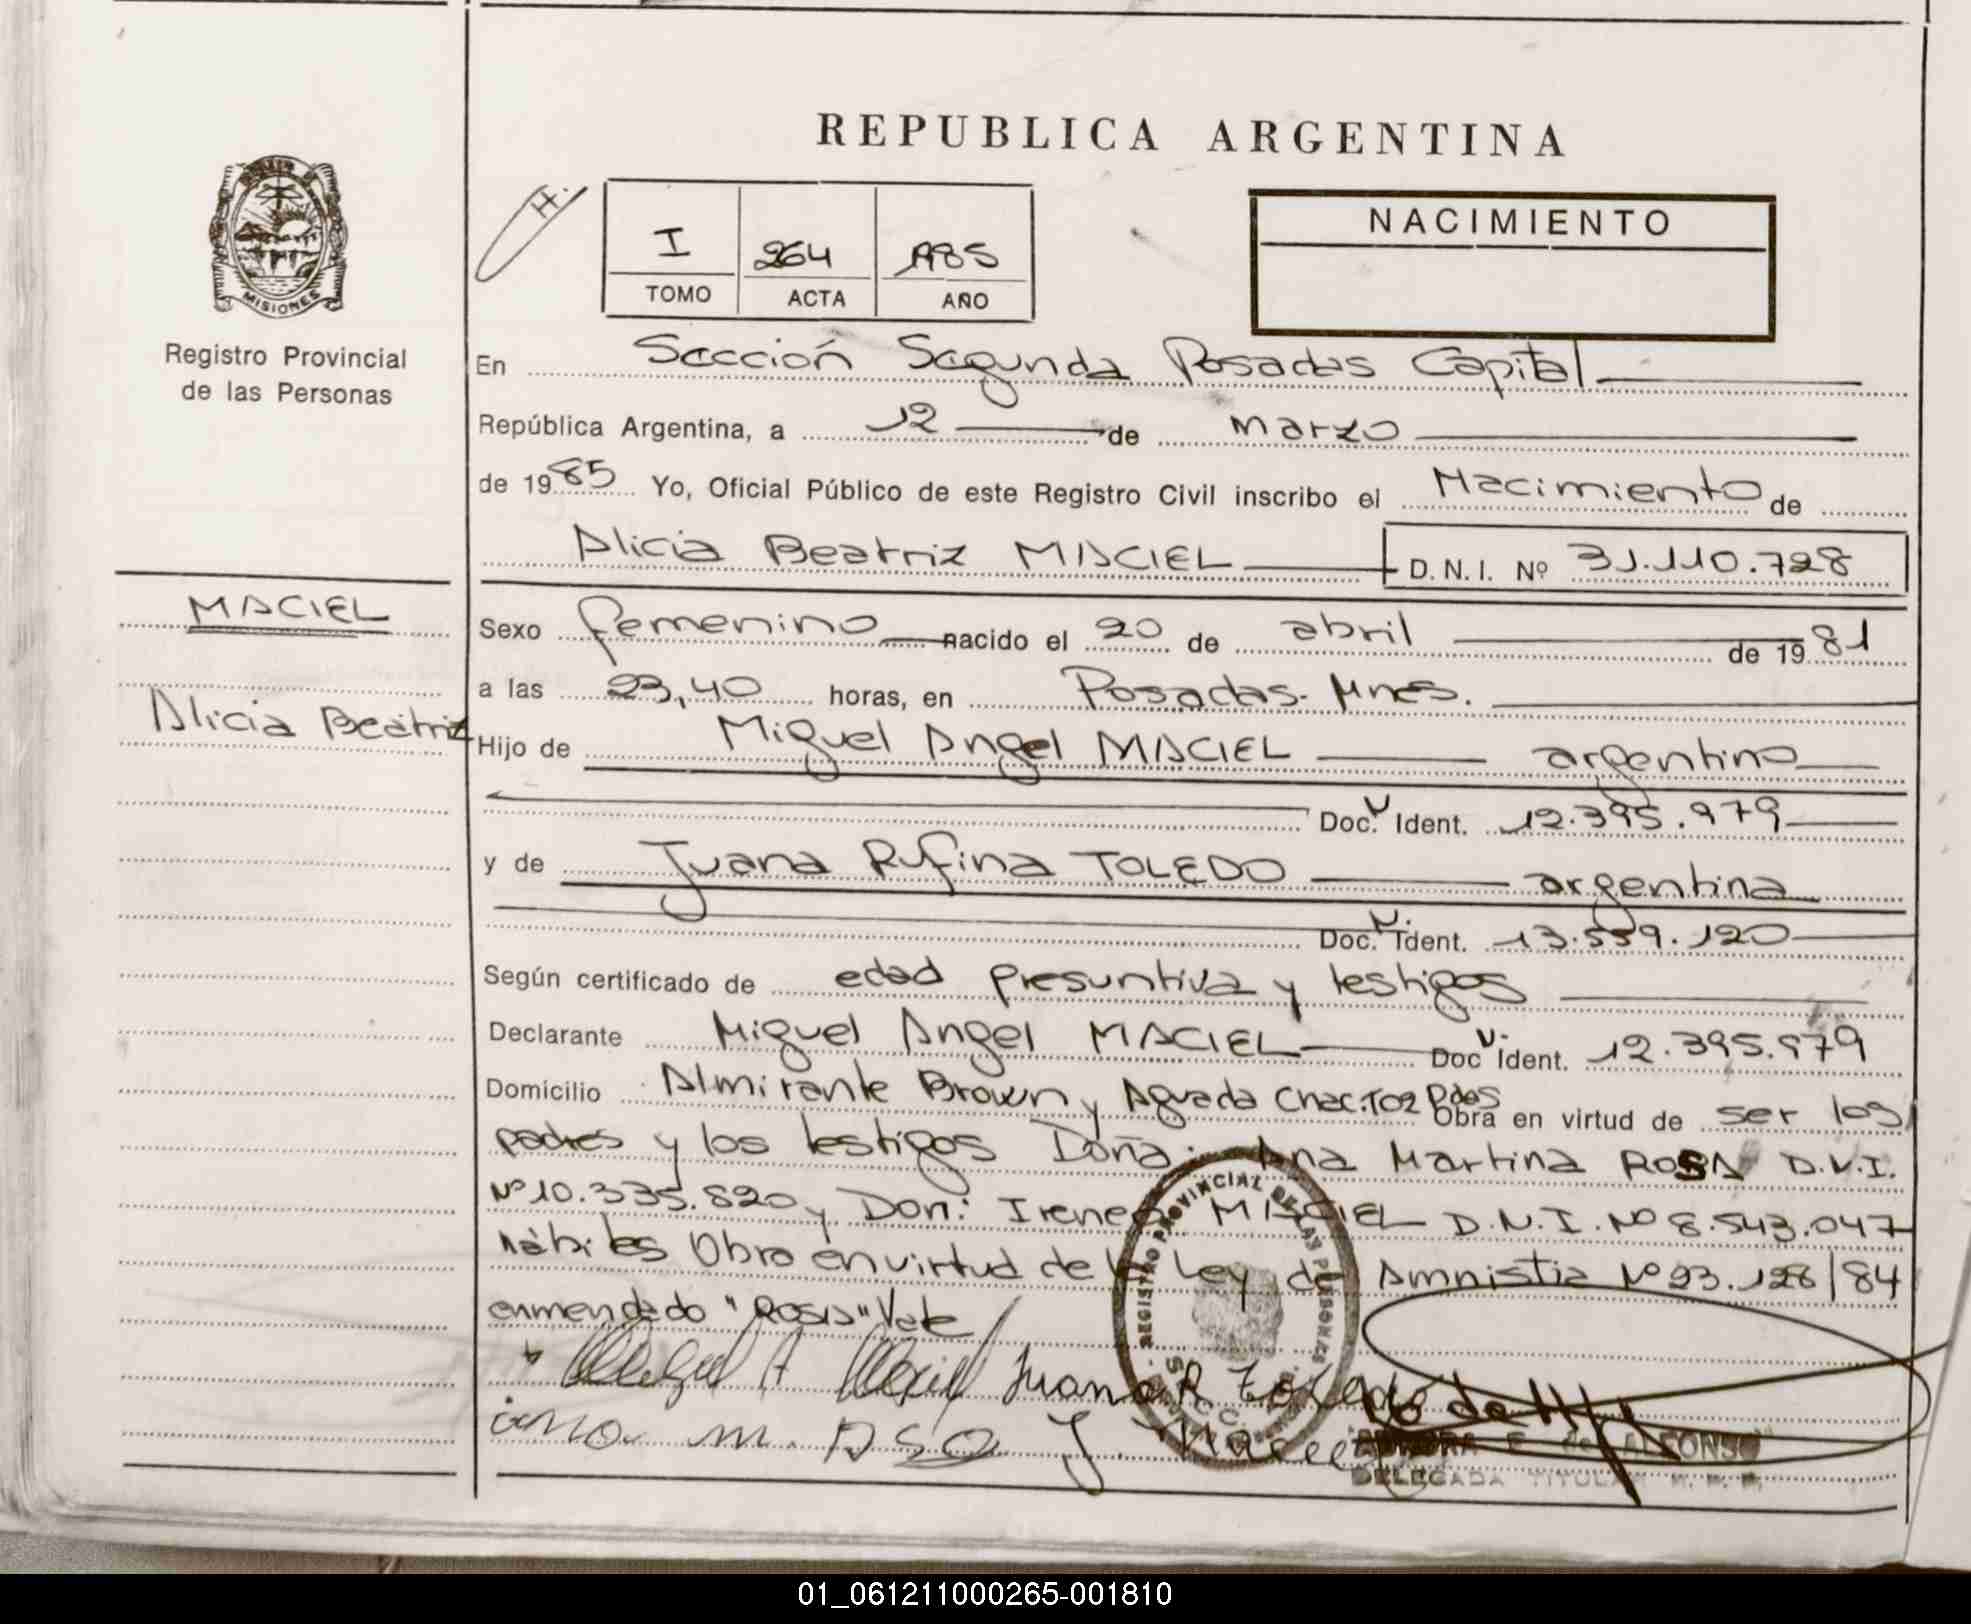 REPUBLICA ARGENTINA
H.
I 264 1985
TOMO ACTA AÑO
NACIMIENTO
MISIONES
Registro Provincial
de las Personas
En Sección Segunda Posadas Capital
República Argentina, a 12 de marzo
de 1985 Yo, Oficial Público de este Registro Civil inscribo el Nacimiento de
Alicia Beatriz MACIEL D.N.I. Nº 31.110.728
MACIEL
Alicia Beatriz
Sexo femenino nacido el 20 de abril de 1981
a las 23,40 horas, en Posadas. Mnes.
Hijo de Miguel Angel MACIEL argentino
Doc. N. Ident. 12.395.979
y de Juana Rufina TOLEDO argentina
Doc. N. Ident. 13.559.120
Según certificado de edad presuntiva y testigos
Declarante Miguel Angel MACIEL Doc N. Ident. 12.395.979
Domicilio Almirante Brown y Aguada Chac. 102 Pdas Obra en virtud de ser los
padres y los testigos Doña: Ana Martina ROSA D.N.I.
Nº 10.335.820 y Don: Ireneo MACIEL D.N.I. Nº 8.543.047
hábiles Obra en virtud de la Ley de Amnistia Nº 23.128/84
enmendado "Rosa" Vale
Miguel A Maciel Juana R Toledo
m. I. Maciel
REGISTRO PROVINCIAL DE LAS PERSONAS
E. de ALFONSO
DELEGADA TITULAR
01_061211000265-001810